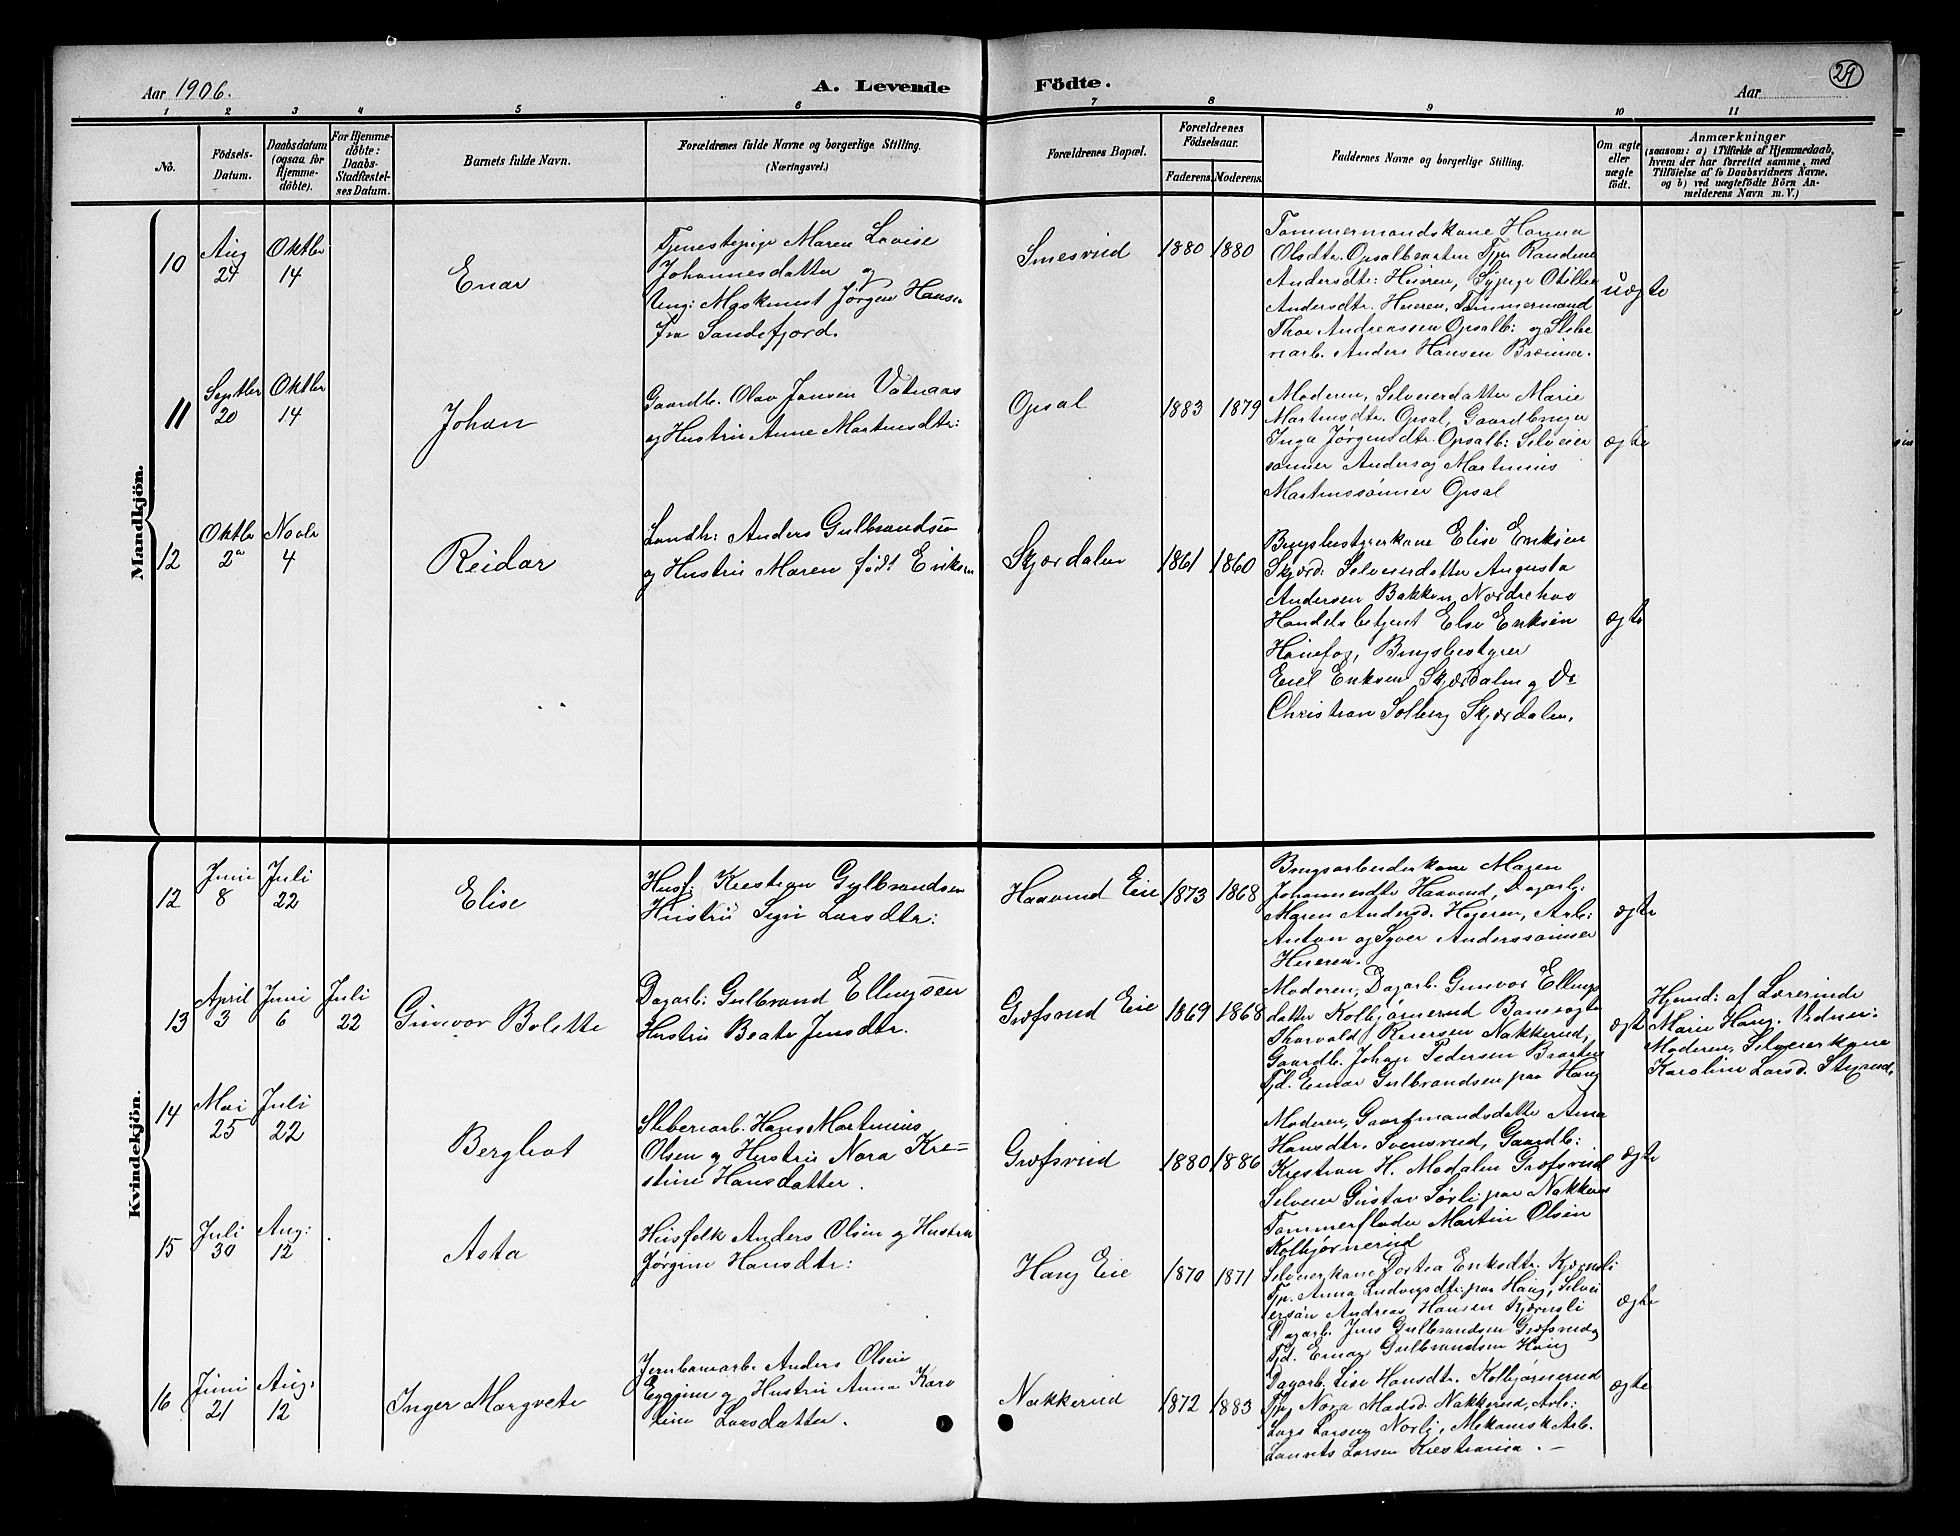 Aar 1906.
A. Levende
Födte.
29
Aar
1 2 3 4 5 6 7 8 9 10 11
No.
Födsels-
Datum.
Daabsdatum
(ogsaa for
Hjemme-
döbte).
For Hjemme-
döbte:
Daabs-
Stadfæstel-
ses Datum.
Barnets fulde Navn.
Forældrenes fulde Navne og borgerlige Stilling.
(Næringsvei.)
Forældrenes Bopæl.
Forældrenes
Födselsaar.
Faderens. Moderens.
Faddernes Navne og borgerlige Stilling.
Om ægte
eller
uægte
födt.
Anmærkninger
(saasom: a) i Tilfælde af Hjemmedaab,
hvem der har forrettet samme, med
Tilföielse af to Daabsvidners Navne,
og b) ved uægtefödte Börn An-
melderens Navn m. V.)
Mandkjön.
10
Aug
24
Oktbr
14
Enar
Tjenestepige Maren Lovise
Johannesdatter og
Ung: Maskinist Jørgen Hansen
fra Sandefjord.
Smesrud
1880 1880
Tømmermandskone Hanna
Olsdtr. Opsalbraaten Tjp. Randine
Andersdtr: Hieren, Sypige Otilie
Andersdtr. Hieren, Tømmermand
Thor Andreassen Opsalb: og Slibe
riarb. Anders Hansen
uægte
11
Septbr
20
Oktbr
14
Johan
Gaardb. Olav Jonsen Vatnaas
og Hustru Anne Martinsdtr:
Opsal
1883 1879
Moderen, Selveierdatter Marie
Martinsdtr. Opsal, Gaardbruger
Inga Jørgensdtr. Opsalb: Selveier
sønner Anders og Martinius
Martinssønner Opsal
ægte
12
Oktbr
2
Novbr
4
Reidar
Landh: Anders Gulbrandsen
og Hustru Maren født Eriksen
Skjærdalen
1861 1860
Brugsbestyrerkone Elise Eriksen
Skjærd: Selveierdatter Augusta
Andersen Bakken, Norderhov
Handelsbetjent Else Eriksen
Hønefos, Brugsbestyrer
Eriksen Skjærdalen og Do
Christian Solberg Skjærdalen.
ægte
Kvindekjön.
12
Juni
8
Juli
22
Elise
Husf: Krestian Gulbrandsen
Hustru Sigri Larsdtr:
Haavrud Eie
1873 1868
Brugsarbeiderkone Maren
Johannesdtr Haavrud, Dagarb:
Maren Andersd. Hieren, Arb:
Anton og Syver Anderssønner
Hieren.
ægte
13
April
3
Juni
6
Juli
22
Gunvor Bolette
Dagarb: Gulbrand Ellingsen
Hustru Beate Jensdtr.
Græfsrud Eie
1869 1868
Moderen, Dagarb. Gunvor Ellings
datter Kolbjørnsrud Banevogter
Thorvald Reiersen Nakkerud,
Gaardb. Johan Pedersen Braaten
Tjd. Einar Gulbrandsen paa Haug
ægte
Hjemd: af Lærerinde
Marie Haug. Vidner:
Moderen, Selveierkone
Karoline Larsd.
14
Mai
25
Juli
22
Bergliot
Sliberiarb. Hans Martinius
Olsen og Hustru Nora Kre=
stine Hansdatter.
Græfsrud
1880 1886
Moderen, Gaardmandsdatter Anna
Hansdtr. Svensrud, Gaardb:
Krestian H. Modalen Græfsrud
Selveier Gustav Sørli paa Nakkerud
Tømmerfløder Martin Olsen
Kolbjørnsrud
ægte
15
Juli
30
Aug:
12
Asta
Husfolk Anders Olsen og Hustru
Jørgine Hansdtr:
Haug Eie
1870 1871
Selveierkone Dortea Eriksdtr. Kjærnsli
Tjp. Anna Ludvigsdtr. paa Haug, Selvei
ersøn Andreas Hansen Kjærnsli
Dagarb. Jens Gulbrandsen Græfsrud og
Tjd. Einar Gulbrandsen Haug
ægte
16
Juni
21
Aug.
12
Inger Margrete
Jernbanearb. Anders Olsen
og Hustru Anna Karo
line Larsdatter.
Nakkerud
1872 1883
Dagarb. Lise Hansdtr. Kolbjørnsrud
Tjp. Nora Madsd. Nakkerud, Arb:
Lars Larsen Norli, Mekanisk Arb.
Laurits Larsen Krestiania. –
ægte